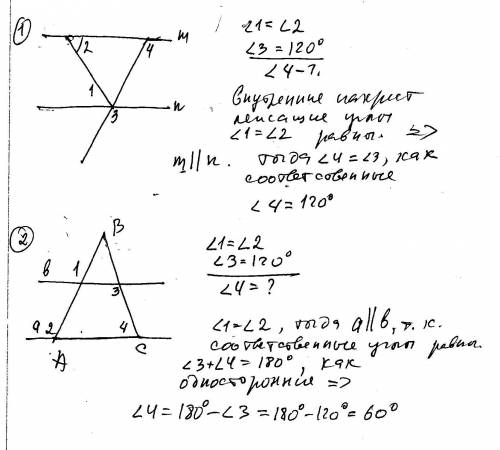 1
m
2
4
1
n
3
∠1=∠2
∠3=120°
∠4-?
Внутренние накрест
лежащие углы
∠1=∠2 равны. =>
m∥n. тогда ∠4=∠3, как
соответсвенные
∠4=120°
2
B
b
1
3
a
2
4
A
C
∠1=∠2
∠3=120°
∠4=?
∠1=∠2, тогда a∥b, т.к.
соответсвенные углы равны.
∠3+∠4=180°, как
односторонние =>
∠4=180°-∠3=180°-120°=60°